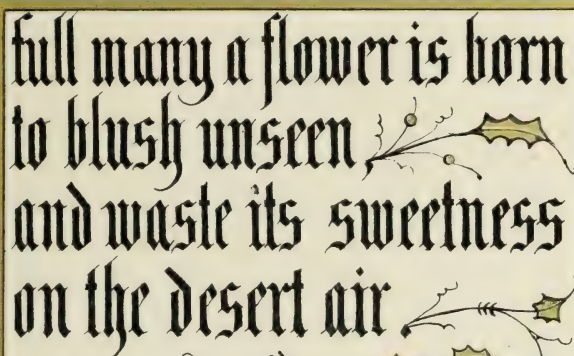 full many a flower is born
to blush unseen
and waste its sweetness
on the desert air